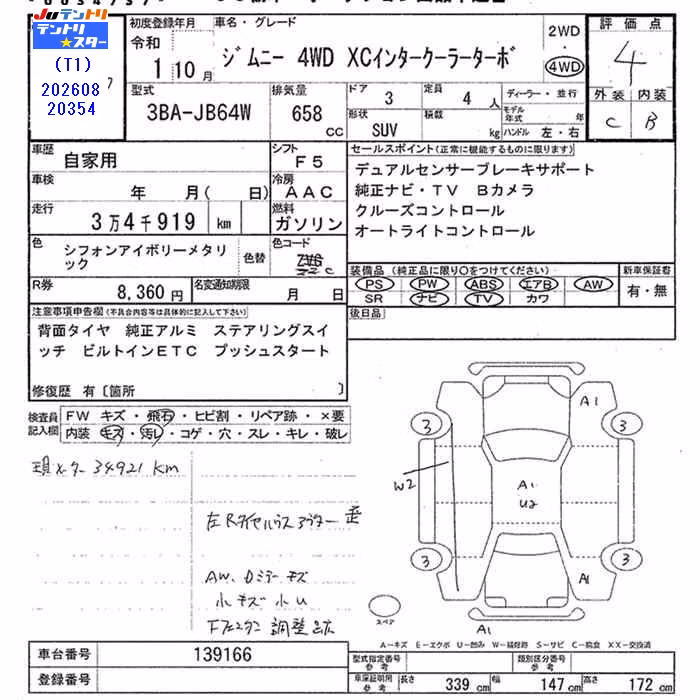 テントリ
テントリ★スター
(T1)
202608
20354
初度登録年月
令和
1 10月
車名・グレード
ジムニー 4WD XCインタークーラーターボ
2WD
・
4WD
評価点
4
外装 内装
C B
型式
3BA-JB64W
排気量
658
cc
ドア
3
形状
SUV
定員
4 人
積載
kg
ディーラー・並行
モデル年式 年
ハンドル 左・右
車歴
自家用
シフト
F5
車検
年 月( 日)
冷房
AAC
走行
3万4千919 km
燃料
ガソリン
色
シフォンアイボリーメタリック
色替
色コード
ZZC
R券
8,360 円
名変通知期限
月 日
セールスポイント(正常に機能するものに限ります)
デュアルセンサーブレーキサポート
純正ナビ・TV Bカメラ
クルーズコントロール
オートライトコントロール
装備品(純正品に限り○をつけてください)
PS PW ABS エアB AW
SR ナビ TV カワ
新車保証書
有・無
後日品
注意事項申告欄(不具合内容等は具体的に記入して下さい)
背面タイヤ 純正アルミ ステアリングスイ
ッチ ビルトインETC プッシュスタート
修復歴 有〔箇所 〕
検査員記入欄
FW キズ・飛石・ヒビ割・リペア跡・×要
内装 キズ・汚レ・コゲ・穴・スレ・キレ・破レ
現メーター 34921 km
左Rタイヤハウスアウター 歪
AW、Dミラーキズ
小キズ小U
調整跡
A1
3 3
W2
A1
U2
3 3
A1
スペア
A1
A-キズ E-エクボ U-凹み W-補修跡 S-サビ C-腐食 XX-交換済
車台番号
139166
登録番号
型式指定番号
参考
類別区分番号
参考
車庫証明用
参考
長さ 339 cm
幅 147 cm
高さ 172 cm